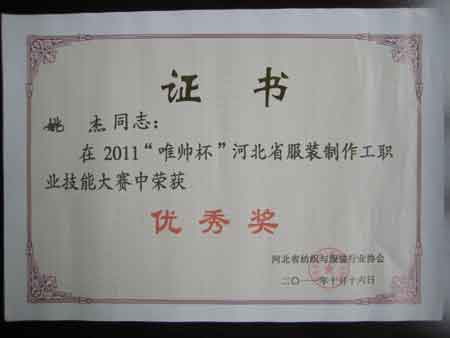 证 书
姚 杰同志：
在2011“唯帅杯”河北省服装制作工职
业技能大赛中荣获
优秀奖
河北省纺织与服装行业协会
二〇一一年十月十六日